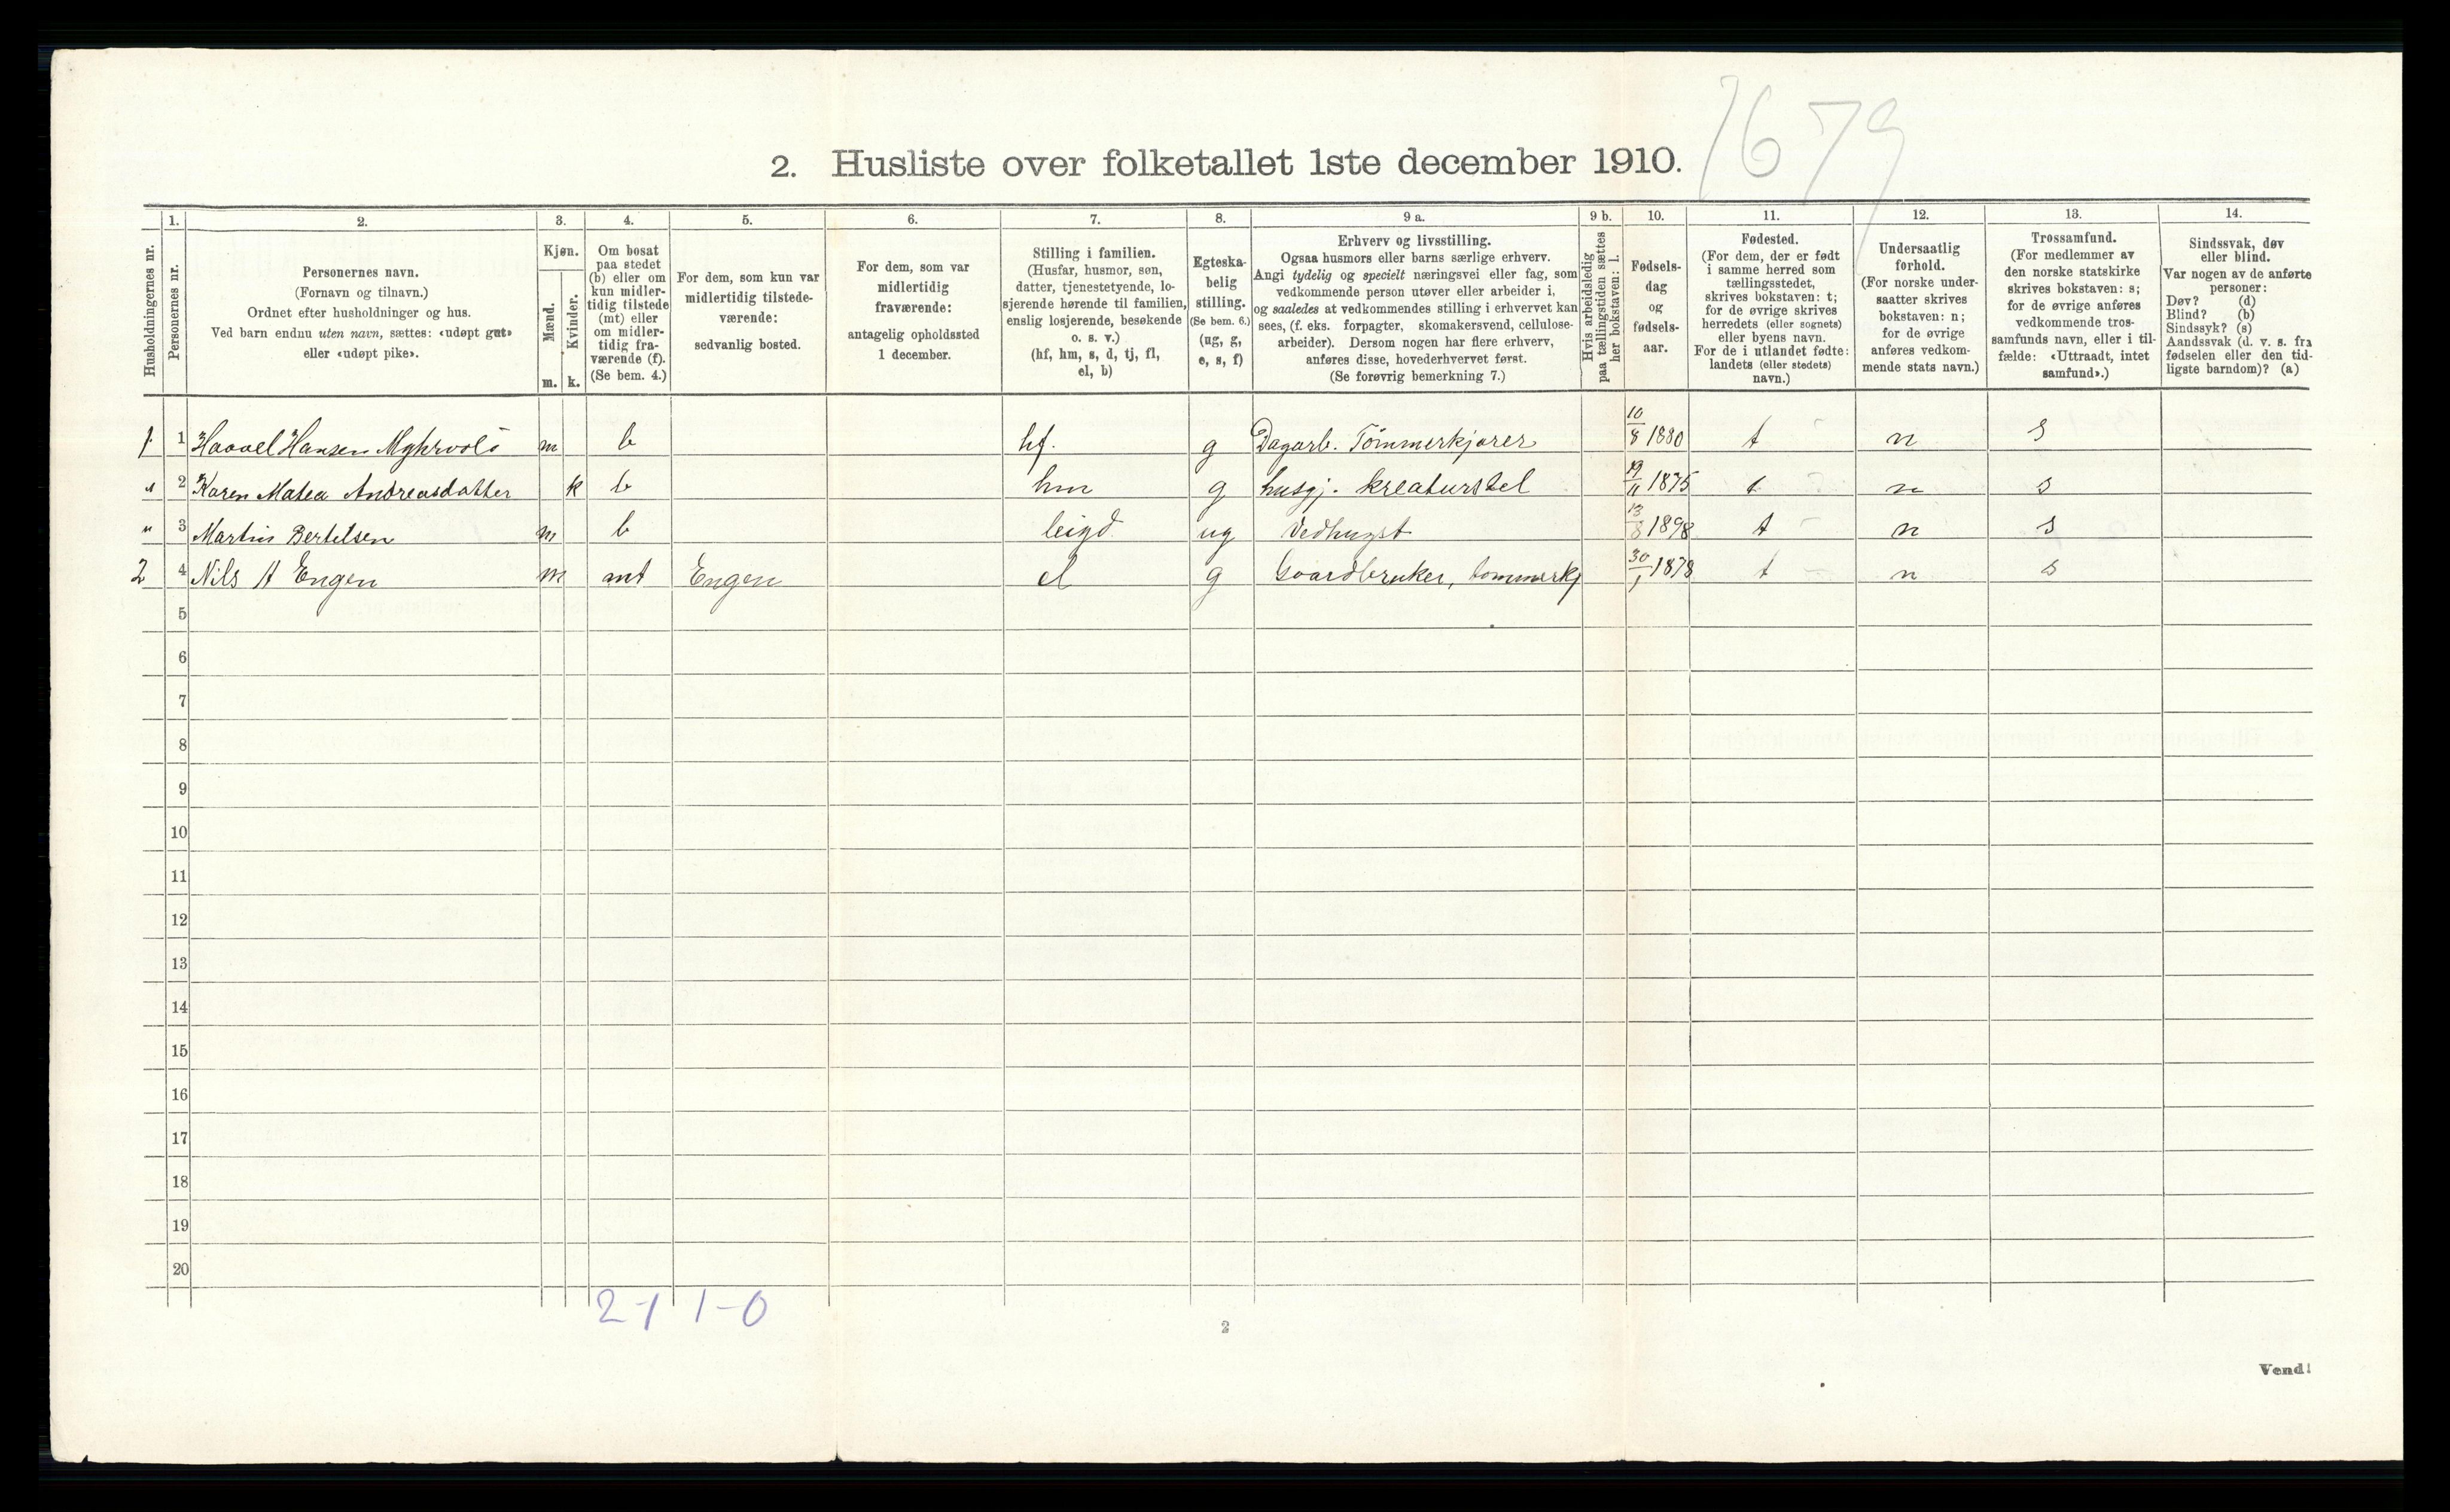 1679
2. Husliste over folketallet 1ste december 1910.
Husholdningernes nr.
1.
Personernes nr.
2.
Personernes navn.
(Fornavn og tilnavn.)
Ordnet efter husholdninger og hus.
Ved barn endnu uten navn, sættes: «udøpt gut»
eller «udøpt pike».
3.
Kjøn.
Mænd.
Kvinder.
m. k.
4.
Om bosat
paa stedet
(b) eller om
kun midler-
tidig tilstede
(mt) eller
om midler-
tidig fra-
værende (f).
(Se bem. 4.)
5.
For dem, som kun var
midlertidig tilstede-
værende:
sedvanlig bosted.
6.
For dem, som var
midlertidig
fraværende:
antagelig opholdssted
1 december.
7.
Stilling i familien.
(Husfar, husmor, søn,
datter, tjenestetyende, lo-
sjerende hørende til familien,
enslig losjerende, besøkende
o. s. v.)
(hf, hm, s, d, tj, fl,
el, b)
8.
Egteska-
belig
stilling.
(Se bem. 6.)
(ug, g,
e, s, f)
9 a.
Erhverv og livsstilling.
Ogsaa husmors eller barns særlige erhverv.
Angi tydelig og specielt næringsvei eller fag, som
vedkommende person utøver eller arbeider i,
og saaledes at vedkommendes stilling i erhvervet kan
sees, (f. eks. forpagter, skomakersvend, cellulose-
arbeider). Dersom nogen har flere erhverv,
anføres disse, hovederhvervet først.
(Se forøvrig bemerkning 7.)
9 b.
Hvis arbeidsledig
paa tællingstiden sættes
her bokstaven: l.
10.
Fødsels-
dag
og
fødsels-
aar.
11.
Fødested.
(For dem, der er født
i samme herred som
tællingsstedet,
skrives bokstaven: t;
for de øvrige skrives
herredets (eller sognets)
eller byens navn.
For de i utlandet fødte:
landets (eller stedets)
navn.)
12.
Undersaatlig
forhold.
(For norske under-
saatter skrives
bokstaven: n;
for de øvrige
anføres vedkom-
mende stats navn.)
13.
Trossamfund.
(For medlemmer av
den norske statskirke
skrives bokstaven: s;
for de øvrige anføres
vedkommende tros-
samfunds navn, eller i til-
fælde: «Uttraadt, intet
samfund».)
14.
Sindssvak, døv
eller blind.
Var nogen av de anførte
personer:
Døv? (d)
Blind? (b)
Sindssyk? (s)
Aandssvak (d. v. s. fra
fødselen eller den tid-
ligste barndom)? (a)
1. 1 Haavel Hansen Myhrvold m b hf. g Dagarb. Tömmerkjörer 10/8 1880 t n s
" 2 Karen Matea Andreasdatter k b hm g husgj. kreaturstel 19/11 1875 t n s
" 3 Martin Bertelsen m b leigd ug Vedhugst 13/8 1898 t n s
2 4 Nils H Engen m mt Engen el g Gaardbruker, tömmerkj 30/1 1878 t n s
5
6
7
8
9
10
11
12
13
14
15
16
17
18
19
20
2-1 1-0
2
Vend!